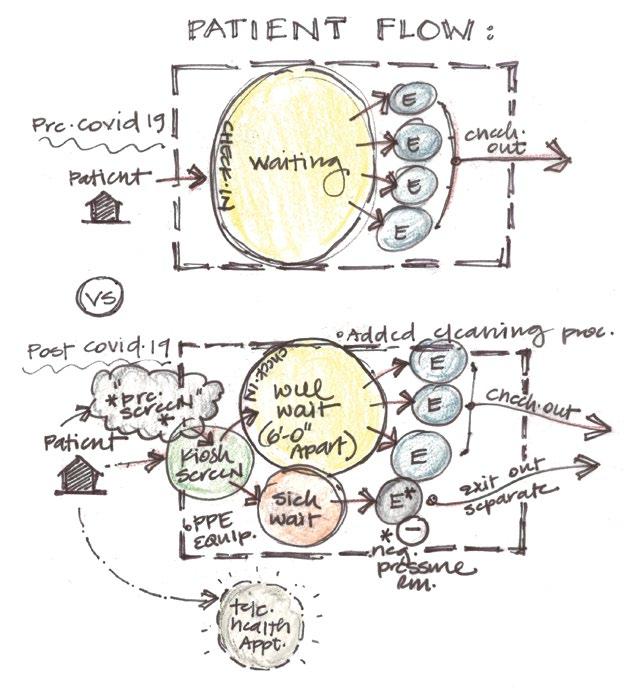 PATIENT FLOW:
Pre·covid 19
patient
CHECK·IN
waiting
E
E
E
E
check·
out
VS
Post covid·19
•Added cleaning proc.
"
*pre·
screen"
*
patient
kiosk
screen
CHECK·IN
well
wait
(6'-0"
Apart)
E
E
E
check·out
sick
wait
E*
exit out
separate
PPE
EQUIP.
*
neg.
pressure
rm.
tele·
health
Appt.